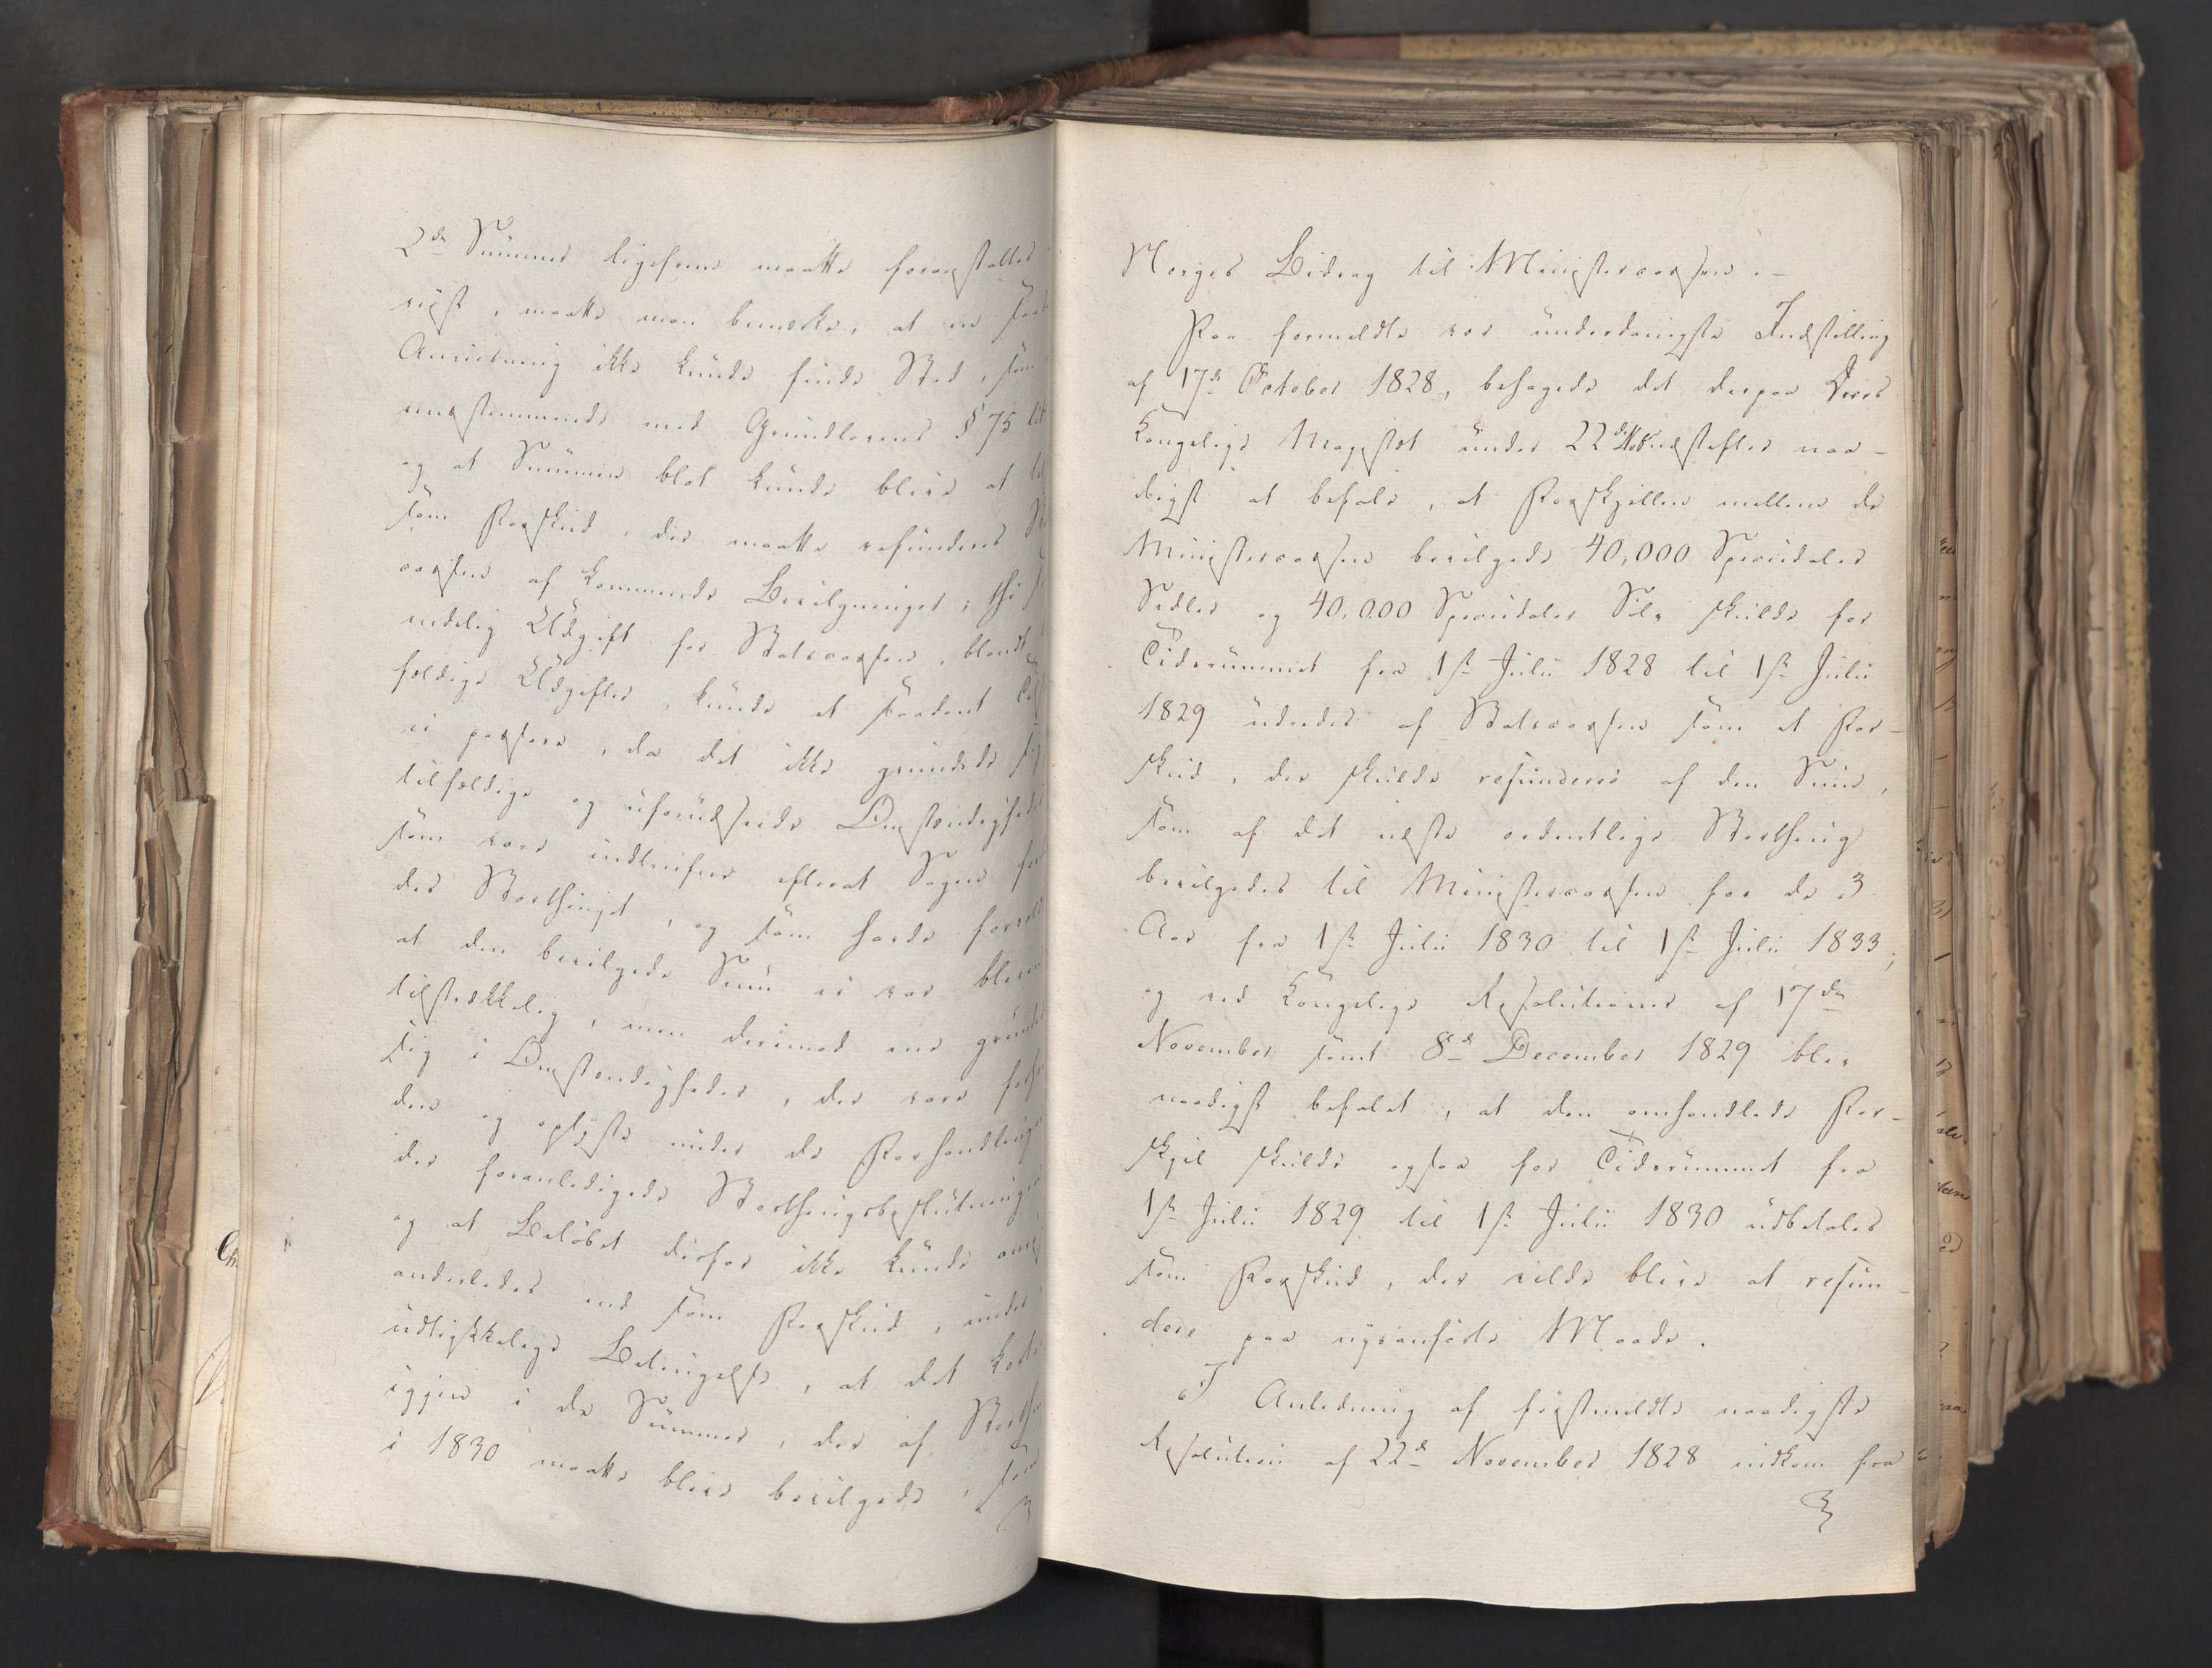 2de Summer ligesom maatte foranstaltes
viist, maatte man bemærke, at en saa
Anviisning ikke kunde finde Sted, som
eensstemmende med Grundlovens § 75 litr
og at Summen blot kunde blive at
som Forskud, der maatte refunderes
cassen af kommende Bevilgninger; thi
endelig Udgift for Statscassen, blandt
fældige Udgifter, kunde et saadant
ei passere, da det ikke grundede
tilfældige og uforudseede Omstændighe
som vare indtrufne efterat Sagen
det Storthinget, og som havde
at den bevilgede Sum ei var bleven
tilstrækkelig, men derimod
sig i Omstændigheder, der vare
den og oplyste under de Forhandlinger
der foranledigede Storthingsbeslutningen
og at Beløbet derfor ikke kunde
anderledes end som Forskud, under
udtrykkelige Betingelse, at det
igjen i de Summer, der af Storth
i 1830 maatte blive bevilgede, som
Norges Bidrag til Ministercassen.-
Paa formeldte vor underdanigste Indstilling
af 17de October 1828, behagede det derpaa Deres
Kongelige Majestæt under 22de Novbr næstefter naa-
digst at befale, at Forskjellen mellem de
Ministercassen bevilgede 40,000 Speciedaler
Sedler og 40,000 Speciedaler Sølv skulde for
Tidsrummet fra 1ste Julii 1828 til 1ste Julii
1829 udredes af Statscassen som et For-
skud, der skulde refunderes af den Sum,
som af det næste ordentlige Storthing
bevilgedes til Ministercassen for de 3
Aar fra 1ste Julii 1830 til 1ste Julii 1833;
og ved Kongelige Resolutioner af 17de
November samt 8de December 1829 blev
naadigst befalet, at den omhandlede For-
skjel skulde ogsaa for Tidsrummet fra
1ste Julii 1829 til 1ste Julii 1830 udbetales
som Forskud, der vilde blive at refun-
dere paa nysanførte Maade.
I Anledning af førstmeldte naadigste
Resolution af 22de November 1828 indkom fra